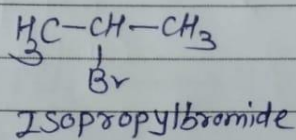 H3C-CH-CH3
Br
Isopropylbromide